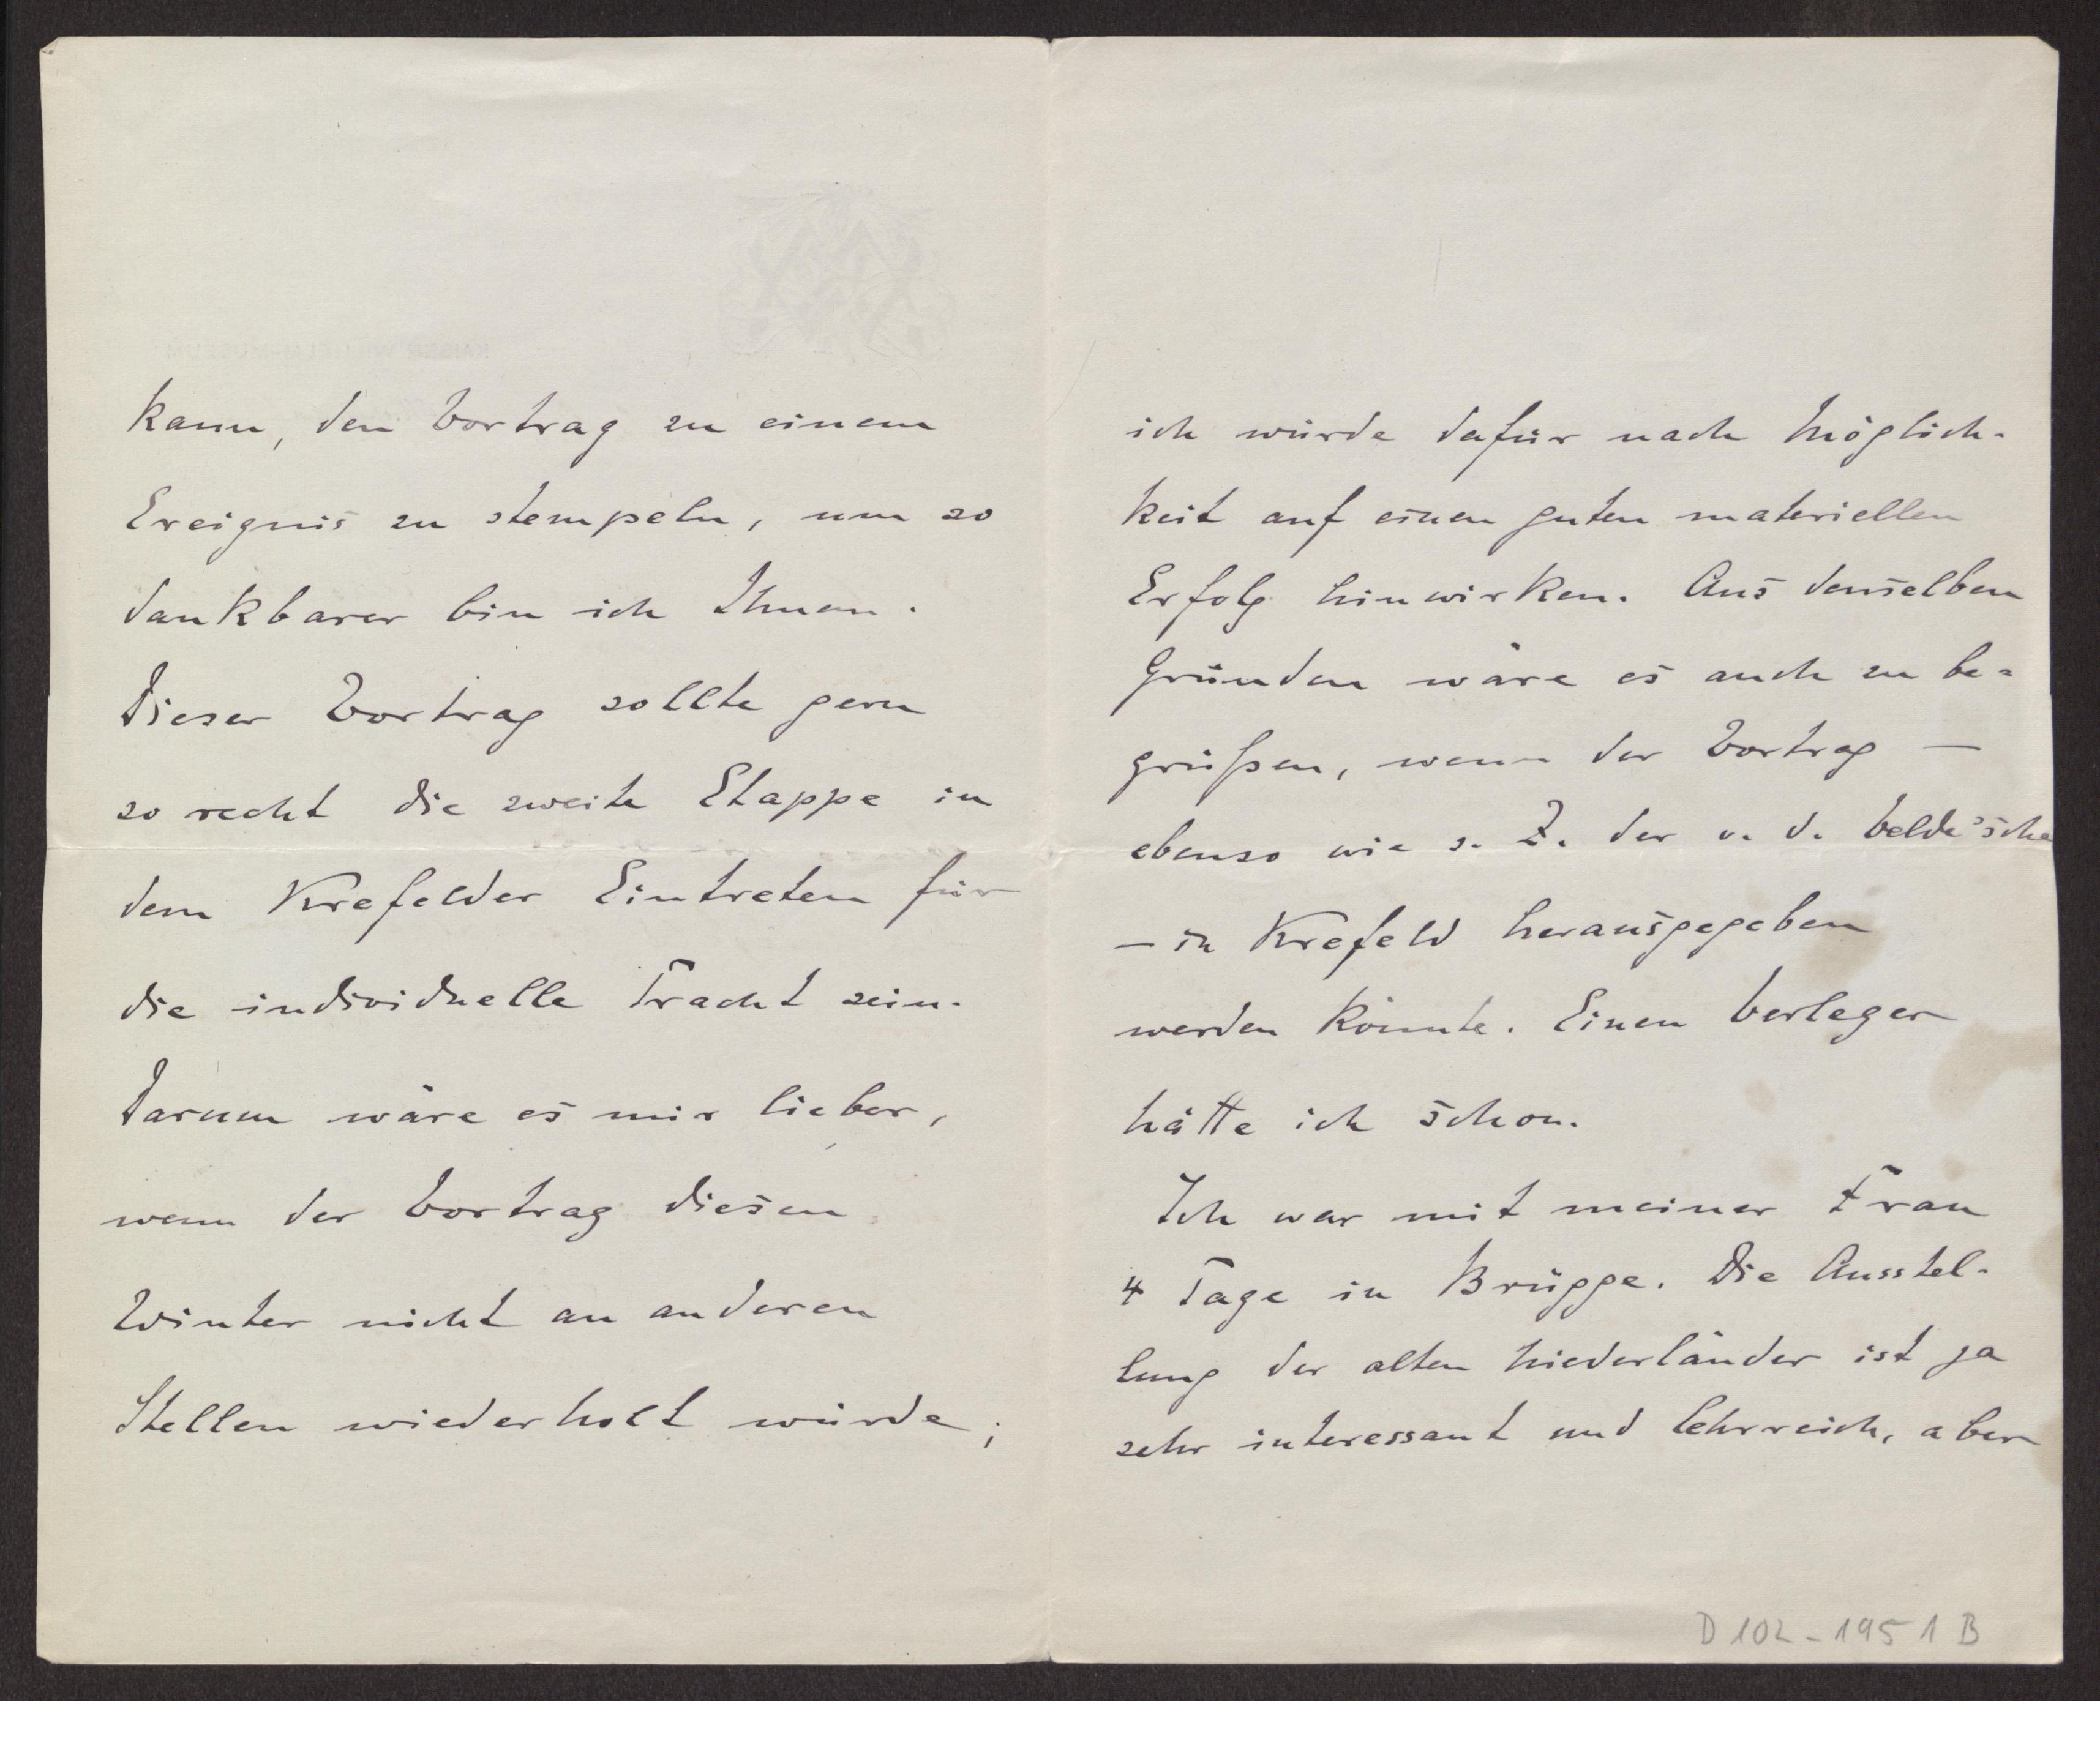 kann, den Vortrag zu einem
Ereignis zu stempeln, um so
dankbarer bin ich Ihnen.
Dieser Vortrag sollte gern
so recht die zweite Etappe in
dem Krefelder Eintreten für
die individuelle Tracht sein.
Darum wäre es mir lieber,
wenn der Vortrag diesen
Winter nicht an anderen
Stellen wiederholt würde;
ich würde dafür nach Möglich-
keit auf einen guten materiellen
Erfolg hinwirken. Aus denselben
Gründen wäre es auch zu be-
grüßen, wenn der Vortrag —
ebenso wie s. Z. der v. d. Velde'sche
— in Krefeld herausgegeben
werden könnte. Einen Verleger
hätte ich schon.
Ich war mit meiner Frau
4 Tage in Brügge. Die Ausstel-
lung der alten Niederländer ist ja
sehr interessant und lehrreich, aber
D 102-1951 B